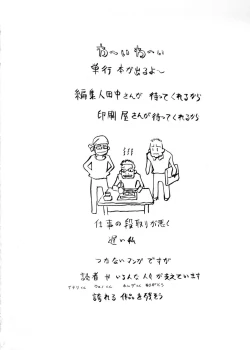 わーい わーい
単行本が出るよ〜
編集人田中さんが 待ってくれるから
印刷屋さんが待ってくれるから
仕事の段取りが悪く
遅い私
つたないマンガですが
読者やいろんな人々が支えています
誇れる作品を残そう